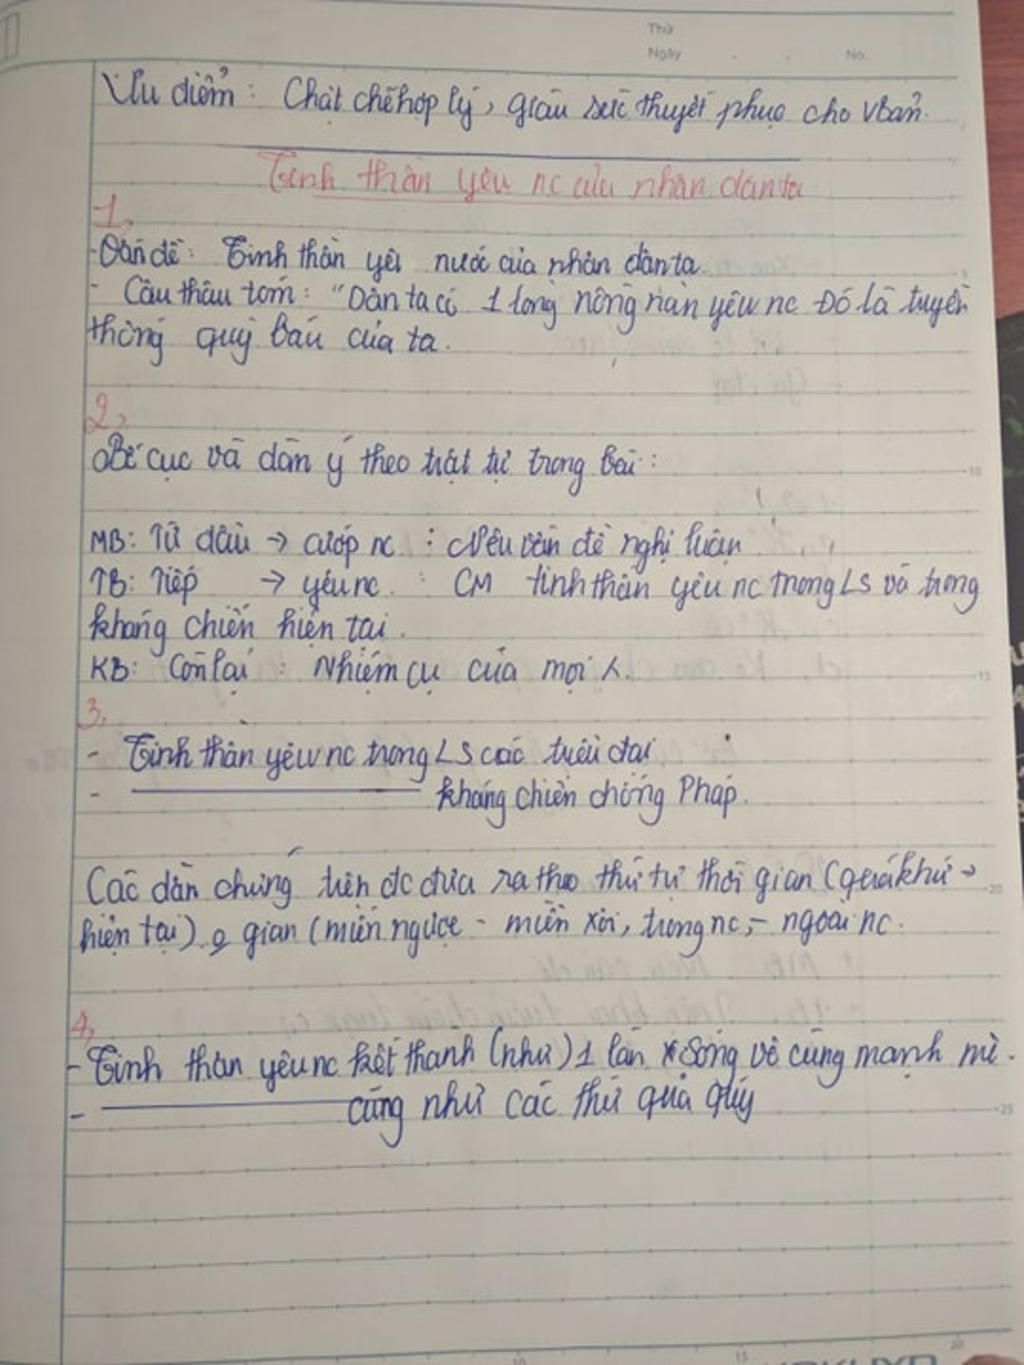 Thứ
Ngày . . No.
Ưu điểm: Chặt chẽ hợp lý, giàu sức thuyết phục cho vbản.
Tinh thần yêu nc của nhân dân ta
1,
- Vấn đề: Tinh thần yêu nước của nhân dân ta.
- Câu thâu tóm: "Dân ta có 1 lòng nồng nàn yêu nc Đó là truyền
thống quý báu của ta.
2,
Bố cục và dàn ý theo trật tự trong bài:
MB: Từ đầu → cướp nc : Nêu vấn đề nghị luận
TB: Tiếp → yêu nc : CM tinh thần yêu nc trong LS và trong
kháng chiến hiện tại.
KB: Còn lại : Nhiệm cụ của mọi
3,
- Tinh thần yêu nc trong LS các triều đại
- kháng chiến chống Pháp.
Các dẫn chứng trên đc đưa ra theo thứ tự thời gian (quá khứ →
hiện tại) gian (miền ngược - miền xôi, trong nc, - ngoài nc.
4,
- Tinh thần yêu nc kết thành (như) 1 làn sóng vô cùng mạnh mẽ.
- cũng như các thứ quả quý